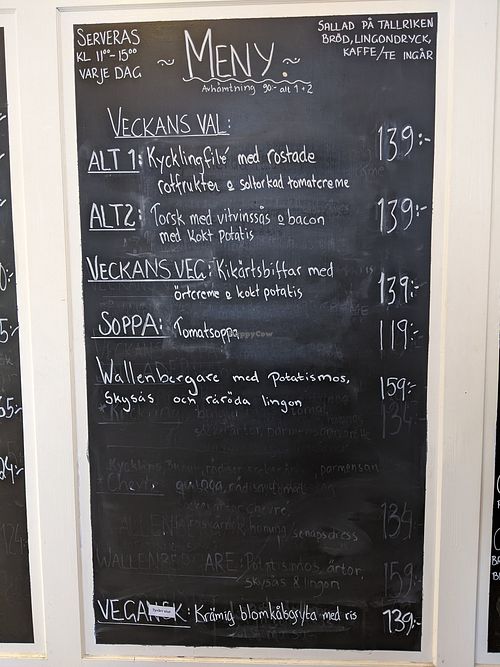 SERVERAS
KL 11⁰⁰-15⁰⁰
VARJE DAG
~ MENY. ~
Avhämtning 90:- alt 1+2
SALLAD PÅ TALLRIKEN
BRÖD, LINGONDRYCK,
KAFFE/TE INGÅR
VECKANS VAL:
ALT 1: Kycklingfilé med rostade 139:-
rotfrukter & soltorkad tomatcreme
ALT2: Torsk med vitvinssås & bacon 139:-
med kokt potatis
VECKANS VEG: Kikärtsbiffar med
örtcreme & kokt potatis 139:-
SOPPA: Tomatsoppa 119:-
HappyCow
Wallenbergare med potatismos, 159:-
skysås och rårörda lingon
134:-
Chevre
134:-
WALLENBERGARE: Potatismos, ärtor, 159:-
skysås & lingon
VEGANSK: Krämig blomkålsgryta med ris 139:-